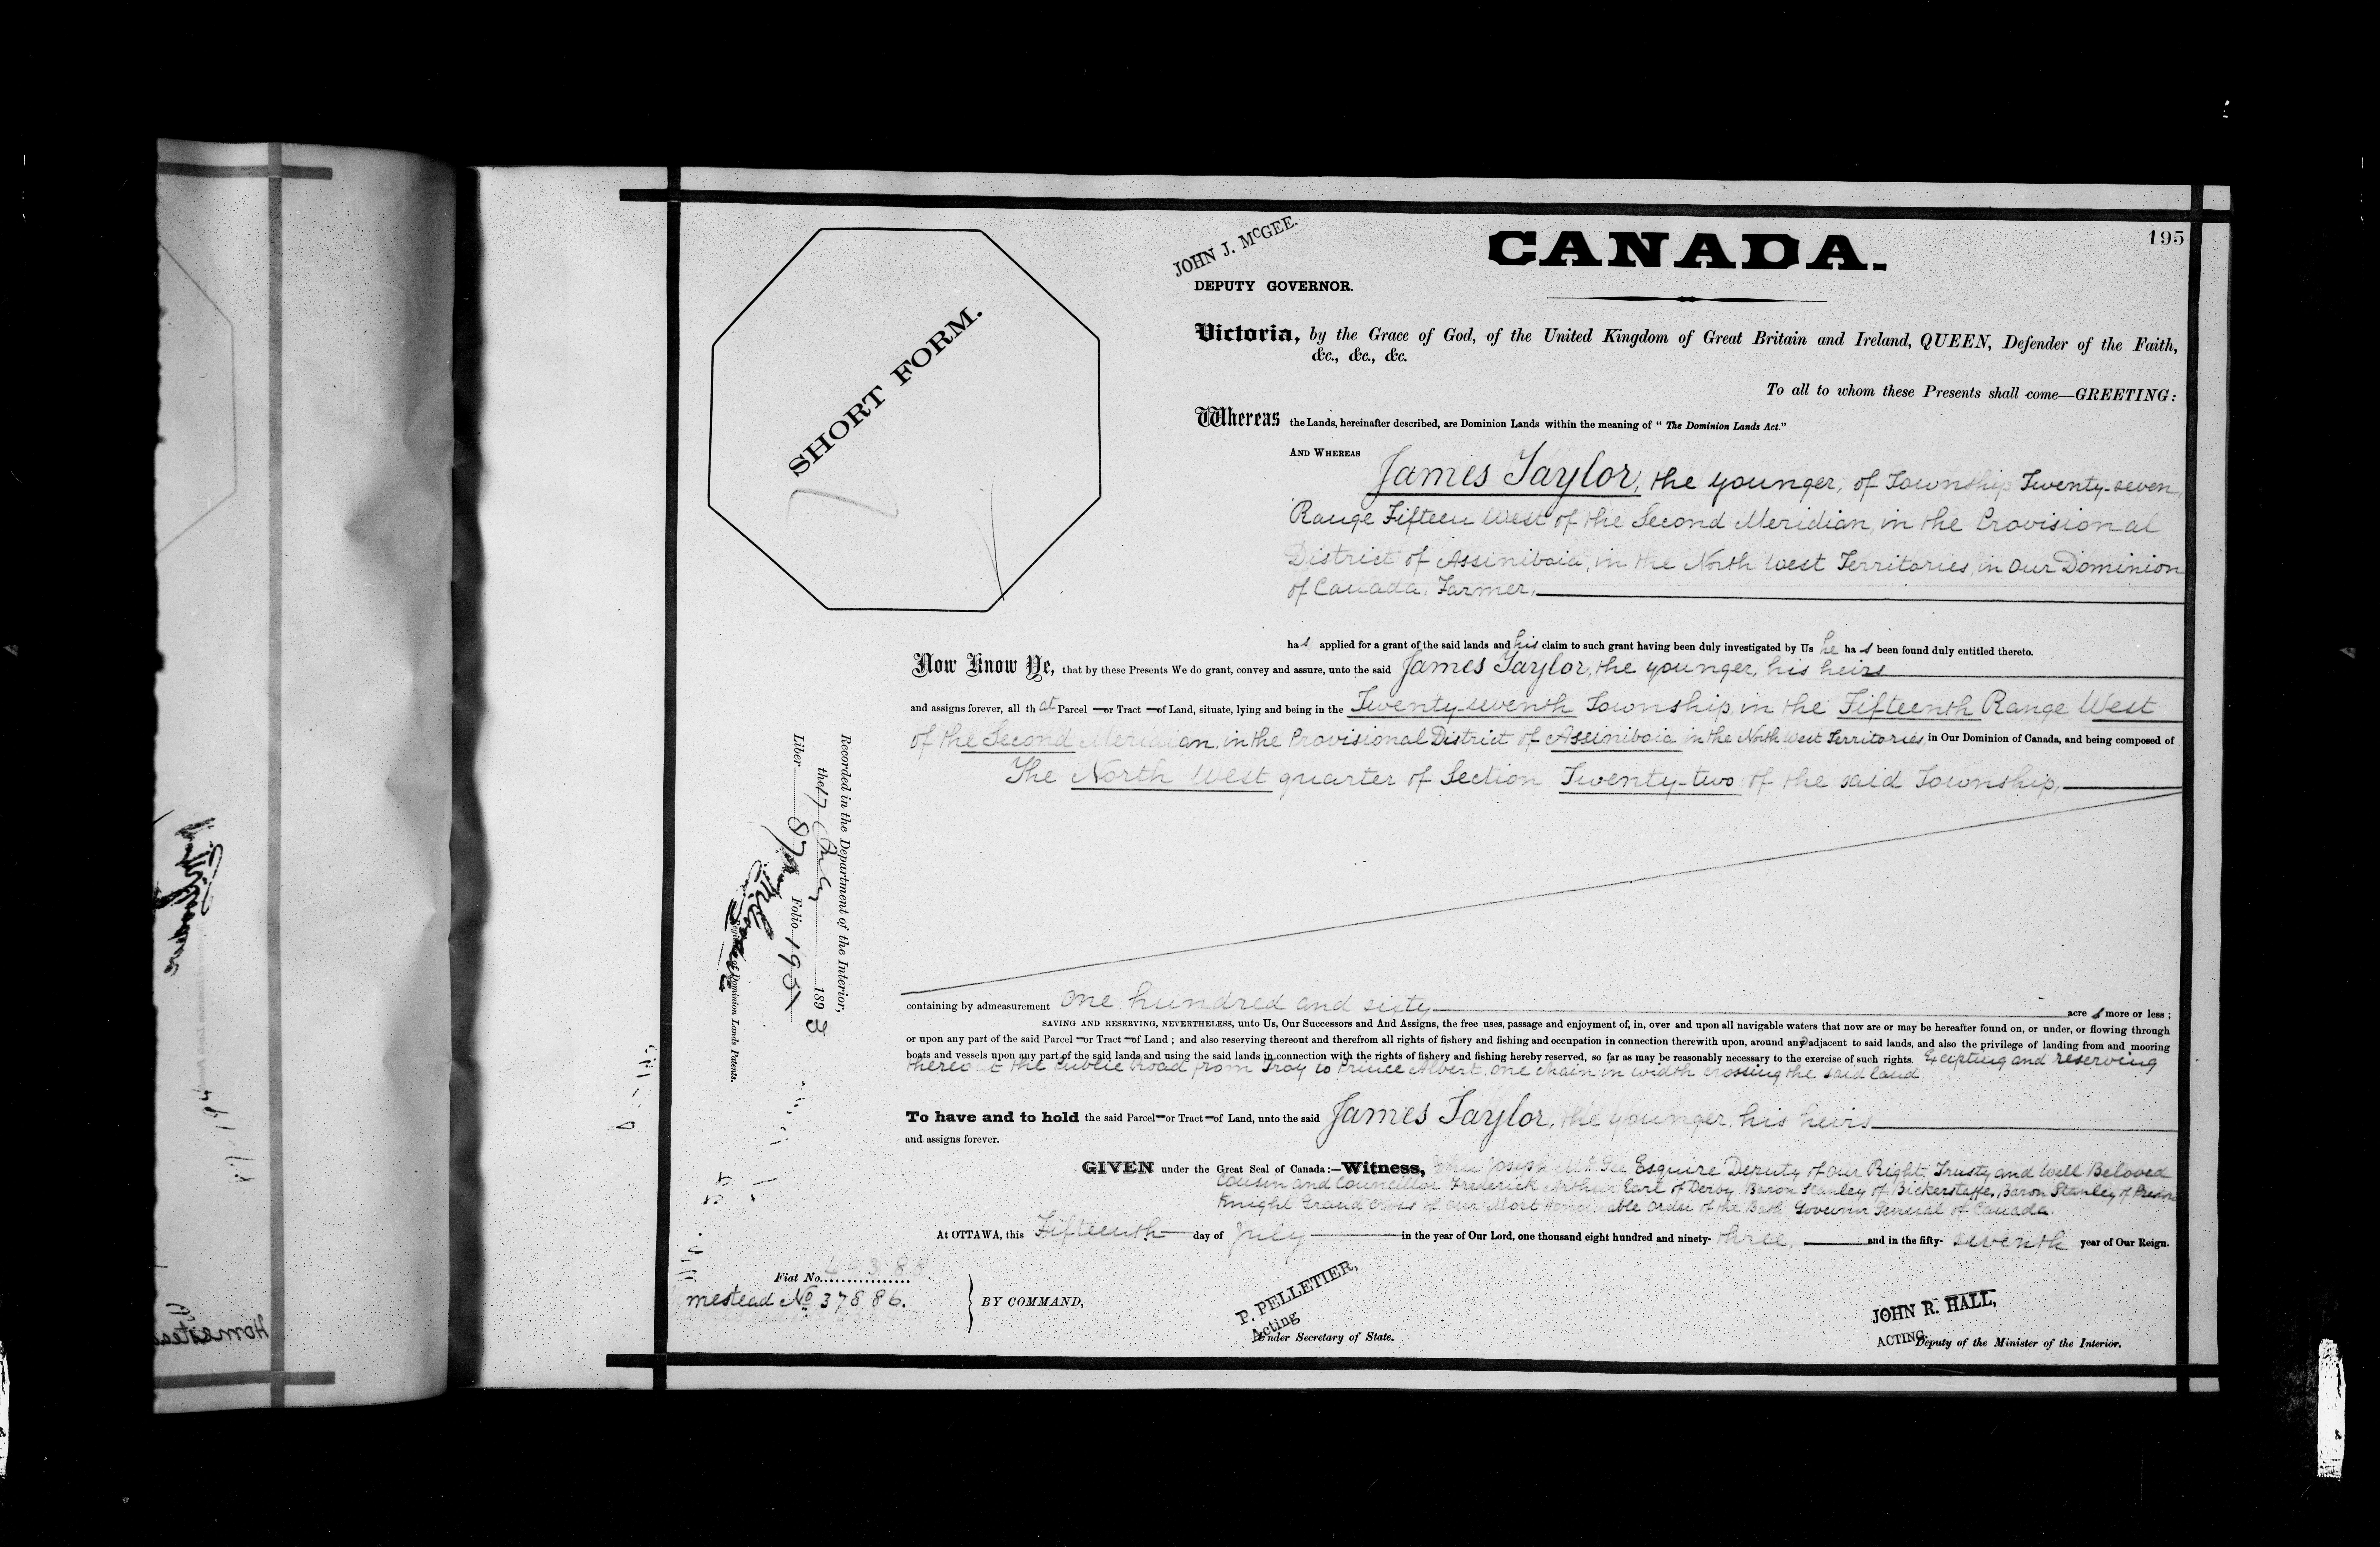 195
JOHN J. McGEE.
DEPUTY GOVERNOR.
CANADA.
SHORT FORM.
Victoria, by the Grace of God, of the United Kingdom of Great Britain and Ireland, QUEEN, Defender of the Faith,
&c., &c., &c.
To all to whom these Presents shall come—GREETING:
Whereas the Lands, hereinafter described, are Dominion Lands within the meaning of " The Dominion Lands Act."
AND WHEREAS
James Taylor, the younger, of Township Twenty-seven,
Range Fifteen West of the Second Meridian, in the Provisional
District of Assiniboia, in the North West Territories, in Our Dominion
of Canada, Farmer,
has applied for a grant of the said lands and his claim to such grant having been duly investigated by Us he has been found duly entitled thereto.
Now Know Ye, that by these Presents We do grant, convey and assure, unto the said James Taylor, the younger, his heirs
and assigns forever, all that Parcel —or Tract —of Land, situate, lying and being in the Twenty-seventh Township, in the Fifteenth Range West
of the Second Meridian, in the Provisional District of Assiniboia in the North West Territories, in Our Dominion of Canada, and being composed of
The North West quarter of Section Twenty-two of the said Township,
Recorded in the Department of the Interior,
the 17 July 1893
Liber 87 Folio 195
Register of Dominion Lands Patents.
containing by admeasurement one hundred and sixty acres more or less ;
SAVING AND RESERVING, NEVERTHELESS, unto Us, Our Successors and And Assigns, the free uses, passage and enjoyment of, in, over and upon all navigable waters that now are or may be hereafter found on, or under, or flowing through
or upon any part of the said Parcel —or Tract —of Land ; and also reserving thereout and therefrom all rights of fishery and fishing and occupation in connection therewith upon, around and adjacent to said lands, and also the privilege of landing from and mooring
boats and vessels upon any part of the said lands and using the said lands in connection with the rights of fishery and fishing hereby reserved, so far as may be reasonably necessary to the exercise of such rights. Excepting and reserving
thereout the Public Road from Troy to Prince Albert, one chain in width crossing the said land
To have and to hold the said Parcel—or Tract—of Land, unto the said James Taylor, the younger, his heirs
and assigns forever.
GIVEN under the Great Seal of Canada:—Witness, John Joseph McGee Esquire Deputy of Our Right Trusty and Well Beloved
Cousin and Councillor Frederick Arthur Earl of Derby, Baron Stanley of Bickerstaffe, Baron Stanley of Preston
Knight Grand Cross of Our Most Honourable Order of the Bath Governor General of Canada.
At OTTAWA, this Fifteenth day of July in the year of Our Lord, one thousand eight hundred and ninety-three, and in the fifty-seventh year of Our Reign.
Fiat No.
mestead No 37886.
BY COMMAND,
P. PELLETIER,
Acting
Under Secretary of State.
JOHN R. HALL,
ACTING
Deputy of the Minister of the Interior.